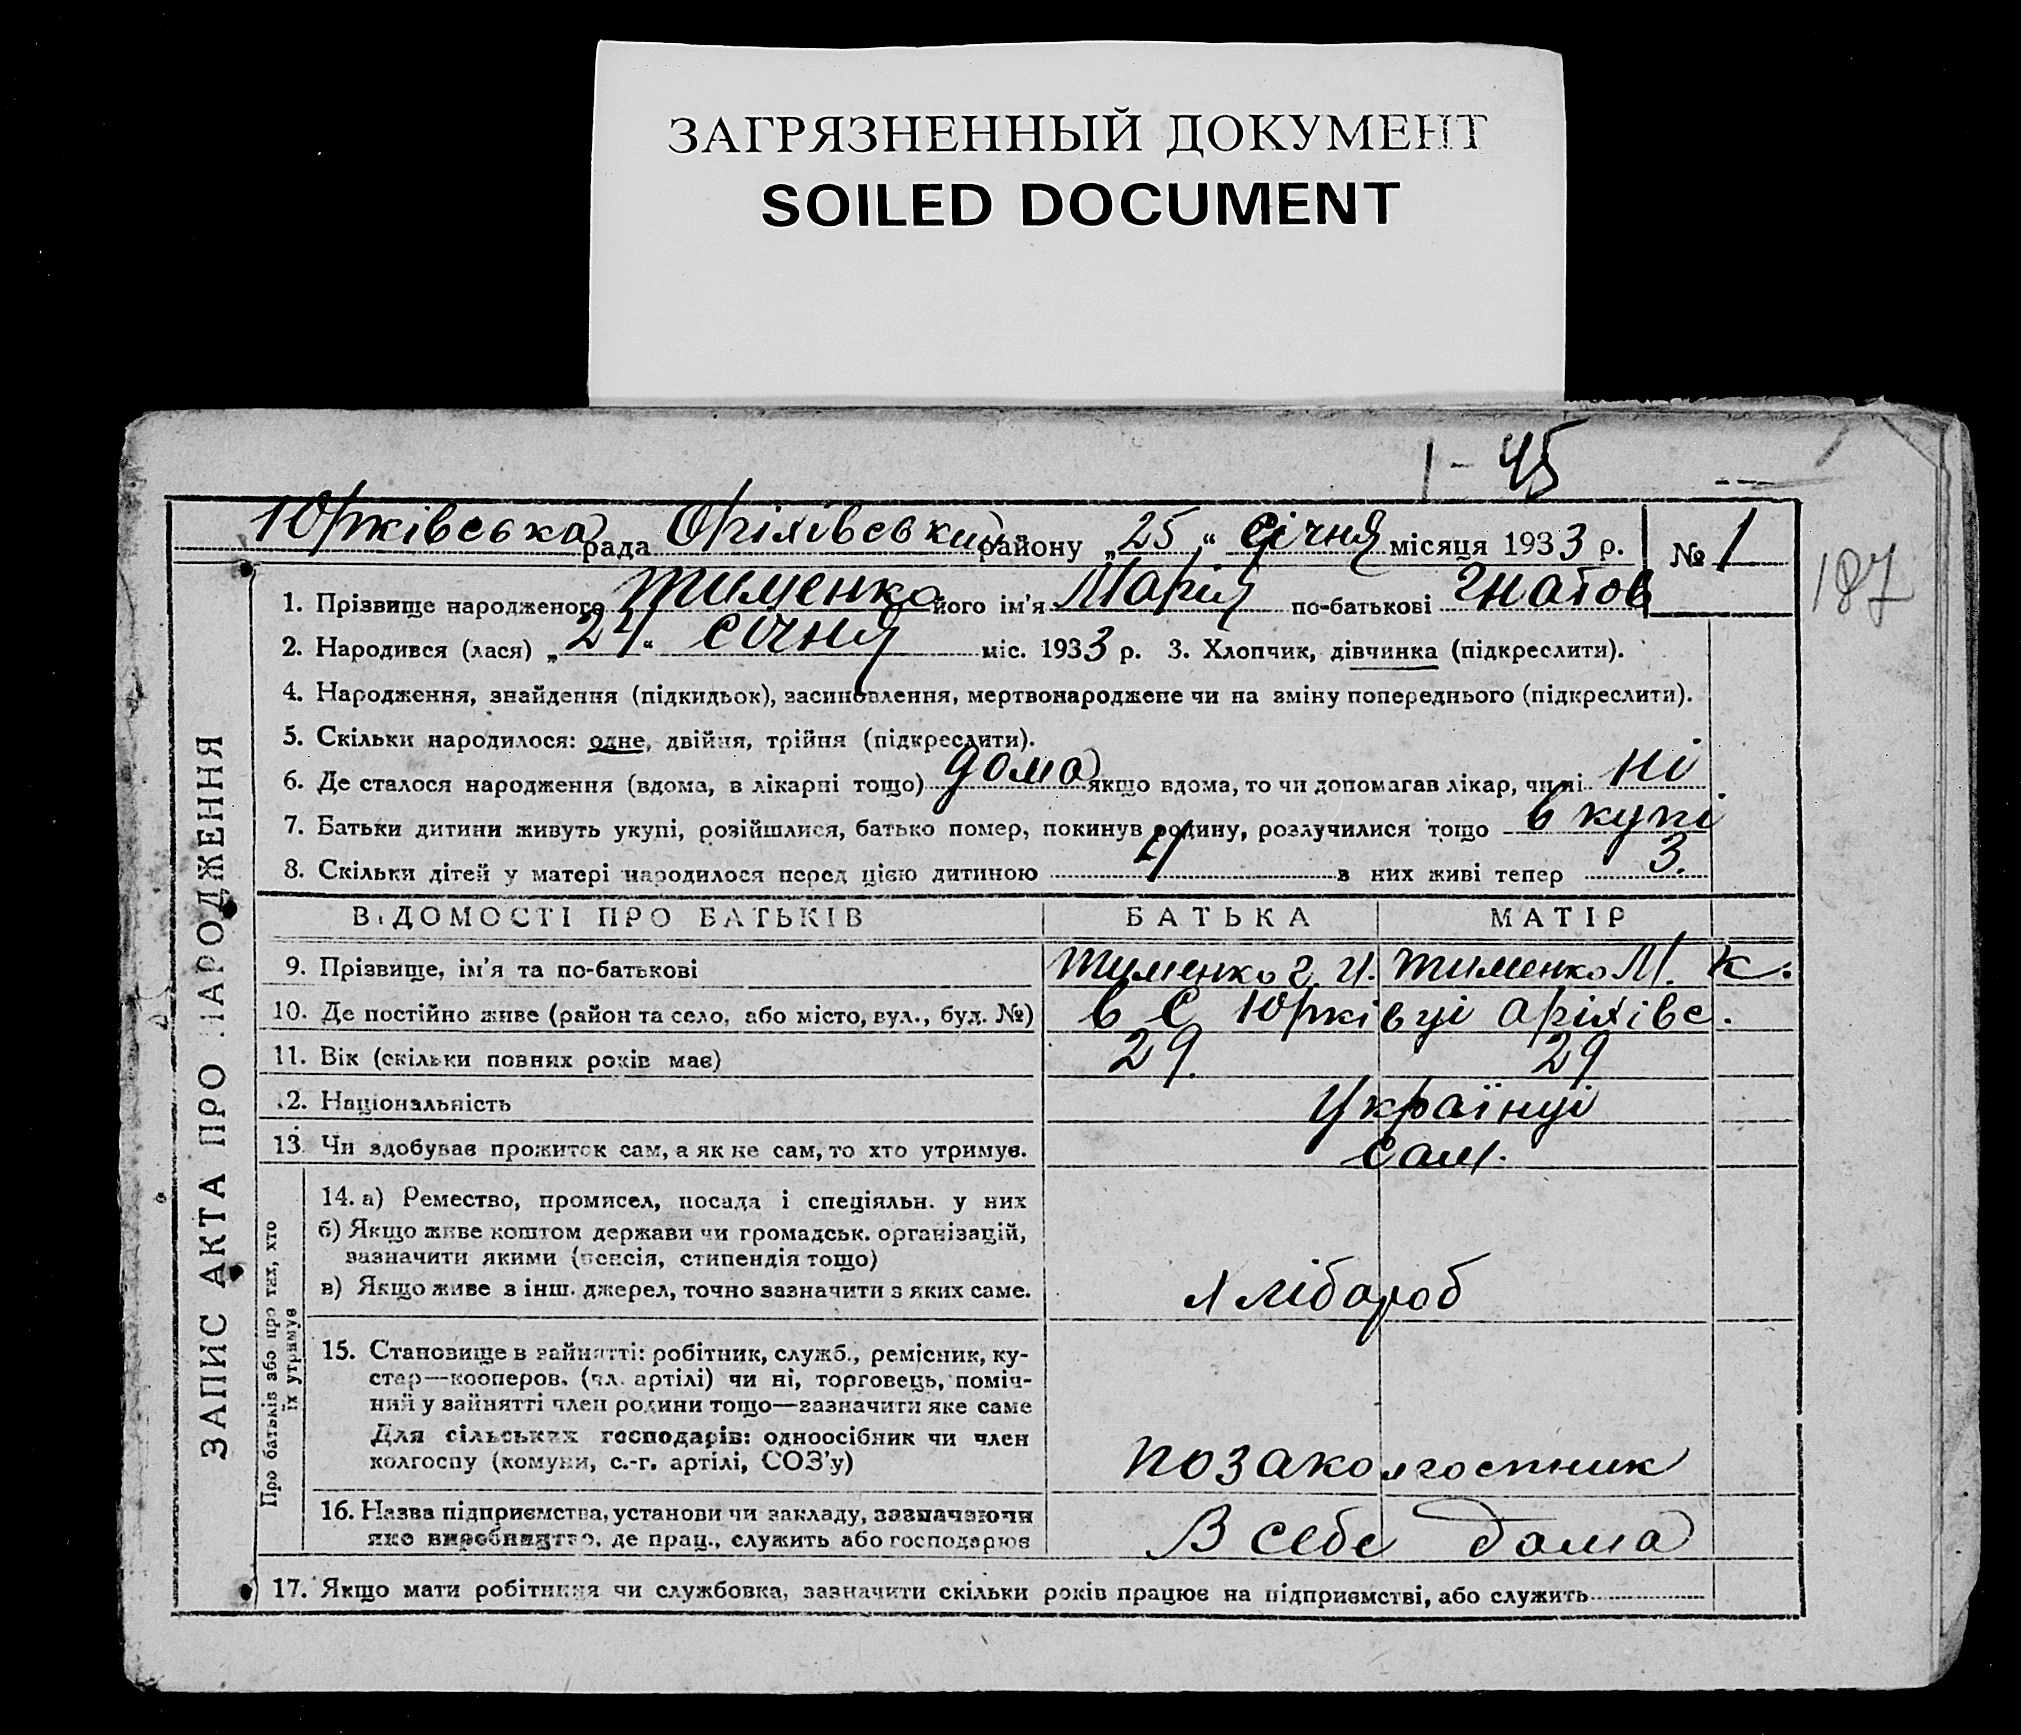 ЗАГРЯЗНЕННЫЙ ДОКУМЕНТ
SOILED DOCUMENT
1 - 45
Юрківська рада Оріхівський району „25“ Січня місяця 1933 р. № 1
187
ЗАПИС АКТА ПРО НАРОДЖЕННЯ
1. Прізвище народженого Тименко його ім'я Марія по-батькові Гнатов
2. Народився (лася) „24“ січня міс. 1933 р. 3. Хлопчик, дівчинка (підкреслити).
4. Народження, знайдення (підкидьок), засиновлення, мертвонароджене чи на зміну попереднього (підкреслити).
5. Скільки народилося: одне, двійня, трійня (підкреслити).
6. Де сталося народження (вдома, в лікарні тощо) дома якщо вдома, то чи допомагав лікар, чи ні ні
7. Батьки дитини живуть укупі, розійшлися, батько помер, покинув родину, розлучилися тощо в купі
8. Скільки дітей у матері народилося перед цією дитиною 4 з них живі тепер 3.
ВІДОМОСТІ ПРО БАТЬКІВ БАТЬКА МАТІР
9. Прізвище, ім'я та по-батькові Тименко Г. И. Тименко М. К.
10. Де постійно живе (район та село, або місто, вул., буд. №) в С Юрківці Оріхівс.
11. Вік (скільки повних років має) 29. 29
12. Національність Українці
13. Чи здобував прожиток сам, а як не сам, то хто утримує. Сам.
Про батьків або про тих, хто
їх утримує
14. а) Ремество, промисел, посада і спеціяльн. у них
б) Якщо живе коштом держави чи громадськ. організацій,
зазначити якими (пенсія, стипендія тощо)
в) Якщо живе з інш. джерел, точно зазначити з яких саме. Хлібароб
15. Становище в зайнятті: робітник, служб., ремісник, ку-
стар—кооперов. (чл. артілі) чи ні, торговець, поміч-
ний у зайнятті член родини тощо—зазначити яке саме
Для сільських господарів: одноосібник чи член
колгоспу (комуни, с.-г. артілі, СОЗ'у) позаколгоспник
16. Назва підприємства, установи чи закладу, зазначаючи
яке виробництво, де прац., служить або господарює В себе дома
17. Якщо мати робітниця чи службовка, зазначити скільки років працює на підприємстві, або служить